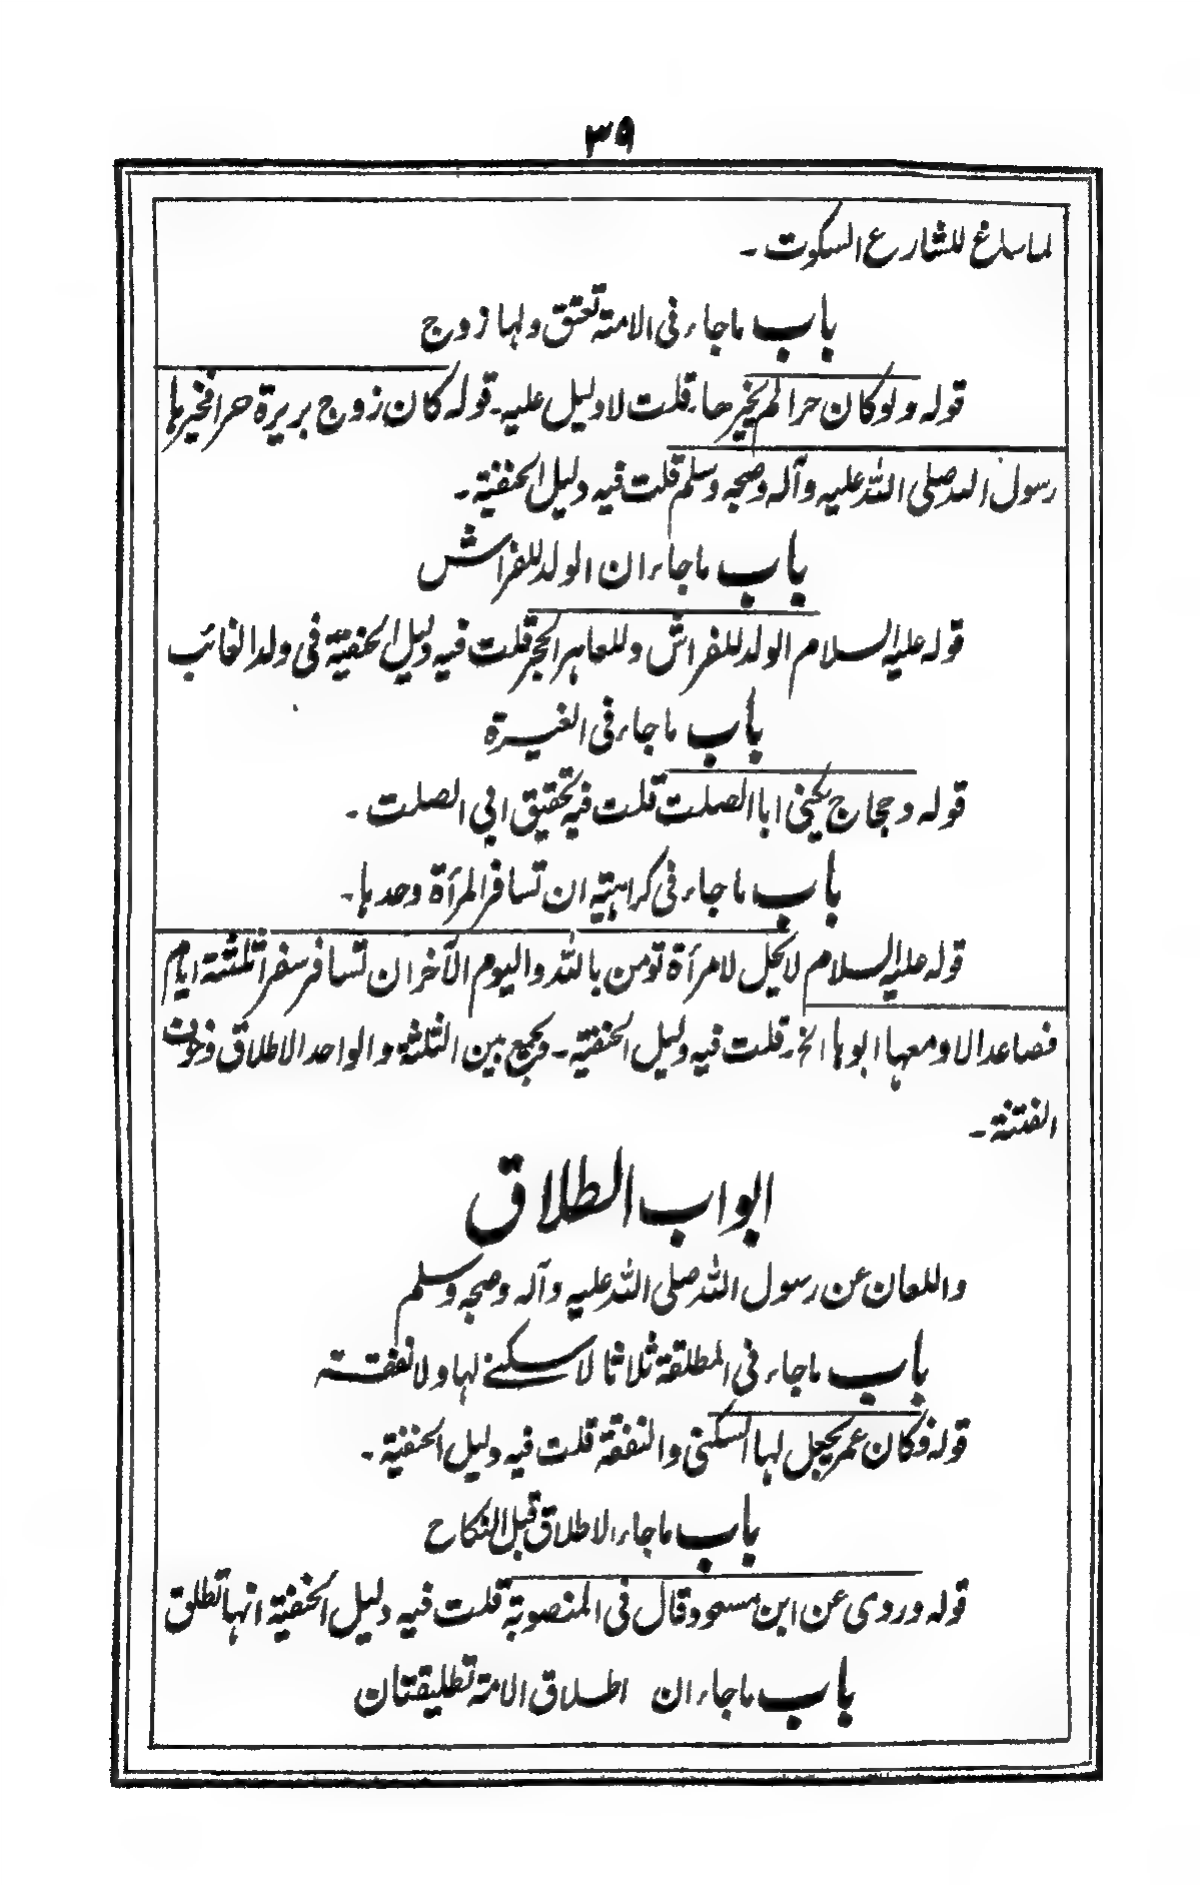 ٣٩
لما ساغ للشارع السكوت ۔
باب ماجاء فى الامة تعتق ولها زوج
قوله ولو كان حرا لم يخيرها۔ قلت لا دليل عليه۔ قوله كان زوج بريرة حرا فخيرها
رسول الله صلى الله عليه وآله وصحبه وسلم قلت فيه دليل الحنفية ۔
باب ماجاء ان الولد للفراش
قوله عليه السلام الولد للفراش وللعاهر الحجر قلت فيه دليل الحنفية فى ولد الغائب
باب ماجاء فى الغيرة
قوله وحجاج يكنى ابا الصلت قلت فيه تحقيق ابى الصلت ۔
باب ماجاء فى كراهية ان تسافر المرأة وحدها۔
قوله عليه السلام لا يحل لامرأة تومن بالله واليوم الآخر ان تسافر سفرا ثلثة ايام
فصاعدا الا ومعها ابوها الخ۔ قلت فيه دليل الحنفية ۔ ويجمع بين الثلثة والواحد الاطلاق وخوف
الفتنة ۔
ابواب الطلاق
واللعان عن رسول الله صلى الله عليه وآله وصحبه وسلم
باب ماجاء فى المطلقة ثلاثا لا سكنے لها ولا نفقة
قوله فكان عمر يجعل لها السكنى والنفقة قلت فيه دليل الحنفية ۔
باب ماجاء لاطلاق قبل النكاح
قوله وروى عن ابن مسعود قال فى المنصوبة قلت فيه دليل الحنفية انها تطلق
باب ماجاء ان اطلاق الامة تطليقتان